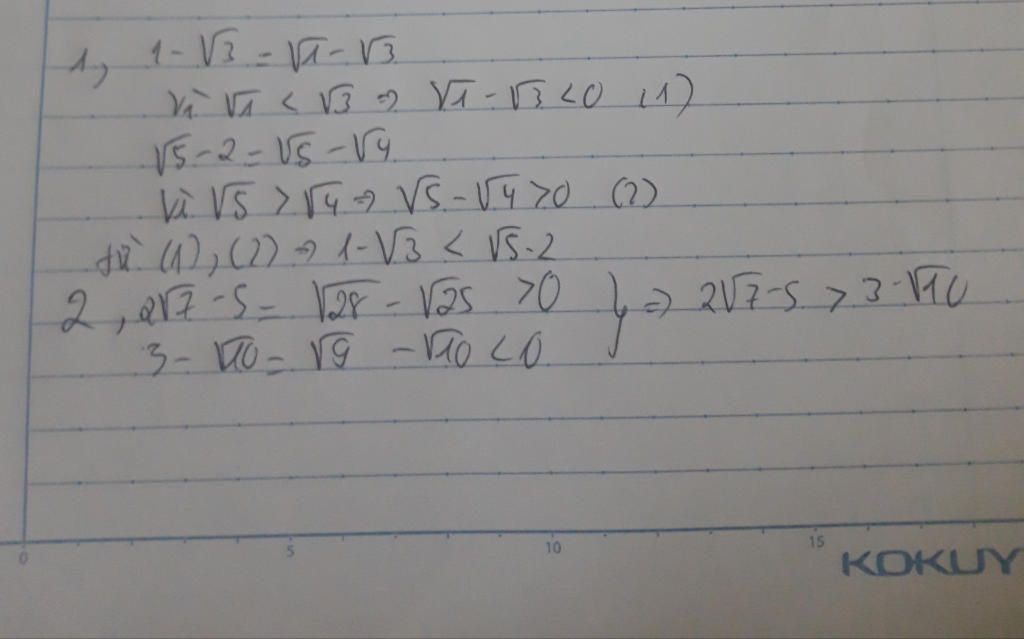 1, 1 - √3 = √1 - √3
Vì √1 < √3 ⇒ √1 - √3 < 0 (1)
√5 - 2 = √5 - √4
Vì √5 > √4 ⇒ √5 - √4 > 0 (2)
từ (1), (2) ⇒ 1 - √3 < √5 - 2
2, 2√7 - 5 = √28 - √25 > 0 } ⇒ 2√7 - 5 > 3 - √10
3 - √10 = √9 - √10 < 0
0 5 10 15
KOKUY